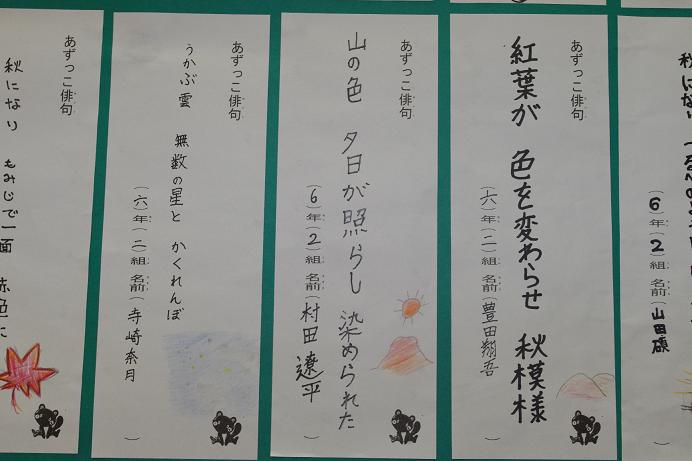 あずっこ俳句
紅葉が 色を変わらせ 秋模様
（六）年（二）組 名前（豊田翔吾）
あずっこ俳句
山の色 夕日が照らし 染められた
（6）年（2）組 名前（村田遼平）
あずっこ俳句
うかぶ雲 無数の星と かくれんぼ
（六）年（二）組 名前（寺崎奈月）
あずっこ俳句
秋になり もみじで一面 赤色に
秋になり
（6）年（2）組 名前（山田碩）